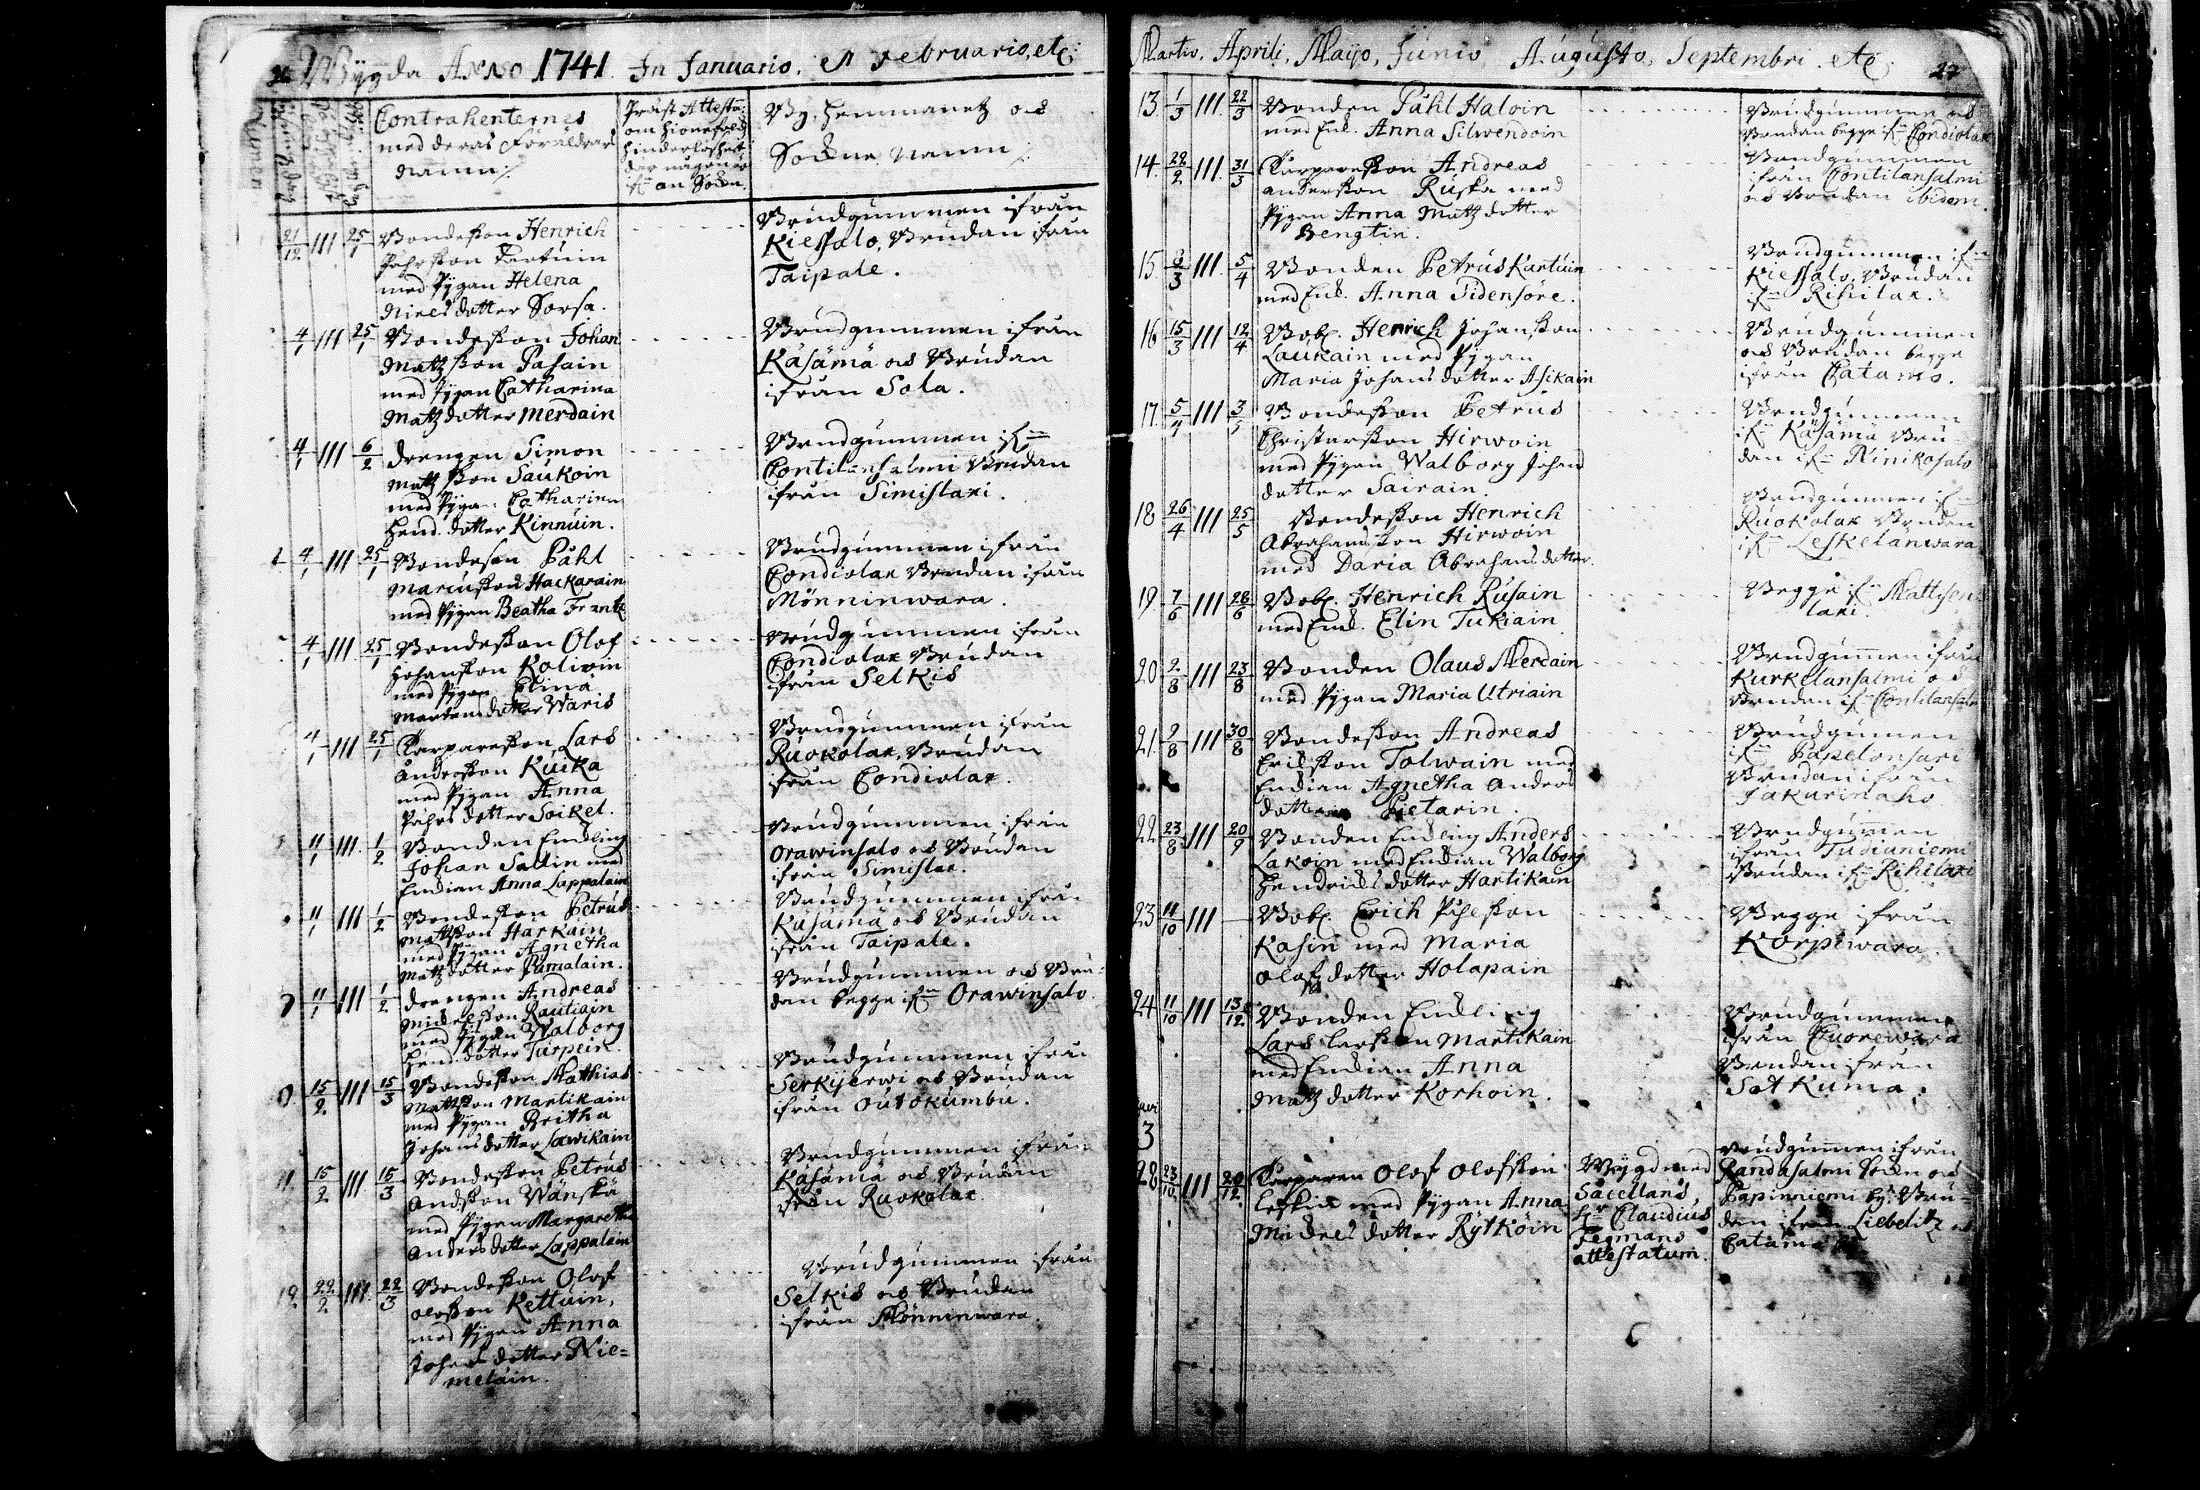 Wygda Anno 1741. In Januario, et Februario, etc:
Contrahenternes
med deras Föräldrars
namn
Präst Attesta:
om hionefolcks
hinderlöshet
där någon är
ifrån an Sokn.
By, hemmanetz och
Sockne namn
21/12 III 25/1 Bondesson Henrich
Påhrsson Kartuin
med Pygan Helena
Nilsdotter Sorsa.
Brudgummen ifrån
Kiessalo, Brudan ifrån
Taipale.
4/1 III 25/1 Bondesson Johan
Matzson Pasain
med Pygan Catharina
Matzdotter Merdain
Brudgummen ifrån
Käsämä och Brudan
ifrån Sola.
4/1 III 6/2 Drengen Simon
Matzson Saukoin
med Pygan Catharina
Hend. dotter Kinnuin.
Brudgummen ifn
Contilansalmi Brudan
ifrån Simislari.
4/1 III 25/1 Bondeson Påhl
Marcusson Hackarain
med Pygan Beatha Frantz
Brudgummen ifrån
Condiolax Brudan ifrån
Mönninwara.
4/1 III 25/1 Bondesson Olof
Johansson Kolioin
med Pygan Elina
Mårtensdotter Waris
Brudgummen ifrån
Condiolax Brudan
ifrån Selkis
4/1 III 25/1 Karparesson Lars
Andersson Kuika
med Pygan Anna
Påhrsdotter Soikel.
Brudgummen ifrån
Ruokolax, Brudan
ifrån Condiolax.
11/1 III 1/2 Bonden Enckling
Johan Sallin med
Enckian Anna Lappalain
Brudgummen ifrån
Orawinsalo och Brudan
ifrån Simislax.
11/1 III 1/2 Bondesson Petrus
Mattsson Harkain
med Pygan Agnetha
Matzdotter Jumalain.
Brudgummen ifrån
Käsämä och Brudan
ifrån Taipale.
11/1 III 1/2 Drengen Andreas
Michelsson Rautiain
med Pygan Walborg
Hend. dotter Turpein.
Brudgummen och Bru=
dan begge ifn Orawinsalo.
15/2 III 15/3 Bondesson Matthias
Mattsson Martikain
med Pygan Britha
Johansdotter Lawikain
Brudgummen ifrån
Serkijerwi och Brudan
ifrån Outokumbu.
11. 15/2 III 15/3 Bondesson Petrus
Andsson Wänskä
med Pygan Margaretha
Andersdotter Lappalain
Brudgummen ifrån
Käsämä och Brudan
från Ruokolax.
12. 22/2 III 22/3 Bondesson Olof
Olofsson Kettuin,
med Pygan Anna
Johansdotter Nie=
melain.
Brudgummen ifrån
Selkis och Brudan
ifrån Mönninwara.
Martio, Aprili, Maijo, Junio, Augusto, Septembri etc. 27
13. 1/3 III 22/3 Bonden Påhl Haloin
med Enk. Anna Silwendoin
Brudgummen och
Brudan begge ifn Condiolax
14. 22/2 III 31/3 Karparesson Andreas
Andersson Ruska med
Pygan Anna Matzdotter
Bengtin.
Brudgummen
ifrån Contilansalmi
och Brudan ibidem.
15. 8/3 III 5/4 Bonden Petrus Kartuin
med Enk. Anna Tidensöre.
Brudgummen ifn
Kiessalo, Brudan
ifn Rihilax.
16 15/3 III 12/4 Bob. Henrich Johansson
Laukain med Pygan
Maria Johansdotter Asikain
Brudgummen
och Brudan begge
ifrån Catamo.
17. 5/4 III 3/5 Bondesson Petrus
Christersson Hirwoin
med Pygan Walborg Johans
dotter Sairain.
Brudgummen
ifn Käsämä Bru
dan ifn Ninikosalo
18 26/4 III 25/5 Bondesson Henrich
Abrahamsson Hirwoin
med Daria Abrahamsdotter.
Brudgummen ifn
Ruokolax Brudan
ifn Leskelanwara
19 7/6 III 28/6 Bob. Henrich Rusain
med Enk. Elin Tukiain
Begge ifn Mattisen
lari.
20. 2/8 III 23/8 Bonden Olaus Merdain
med Pygan Maria Utriain
Brudgummen ifrån
Kurkelansalmi och
Brudan ifn Contilansalm
21. 9/8 III 30/8 Bondesson Andreas
Ericksson Tolwain med
Enckian Agnetha Anders
dotter Pietarin.
Brudgummen
ifn Papelonsari
Brudan ifrån
Jakurinaho
22. 23/8 III 20/9 Bonden Enckling Anders
Lakoin med Enckian Walborg
Hendricksdotter Hartikain
Brudgummen
ifrån Tudiuniemi
Brudan ifn Rihilaxi
23 11/10 III Bob. Erich Påhlsson
Kasin med Maria
Olofzdotter Holapain
Begge ifrån
Korpiwara.
24 11/10 III 13/12 Bonden Enckling
Lars Larsson Martikain
med Enckian Anna
Matzdotter Korhoin.
Brudgummen
ifrån Cuorewara
Brudan ifrån
Sotkuma.
28 23/10 III 20/12 Karparen Olof Olofsson
Leskin med Pygan Anna
Michelsdotter Rytköin
Wygd med
Sacellans,
Hr Claudius
Fegmans
attestatum.
Brudgummen ifrån
Randasalmi Sockn och
Papinniemi by, Bru=
dan ifrån Liebelitz och
Catamo